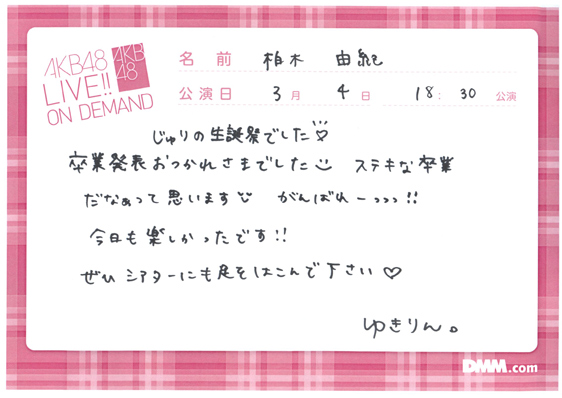 AKB48
LIVE!!
ON DEMAND
AKB
48
名前 柏木 由紀
公演日 3月 4日 18:30 公演
じゅりの生誕祭でした♡
卒業発表おつかれさまでした ステキな卒業
だなぁって思います がんばれーっっっ!!
今日も楽しかったです!!
ぜひシアターにも足をはこんで下さい♡
ゆきりん。
DMM.com